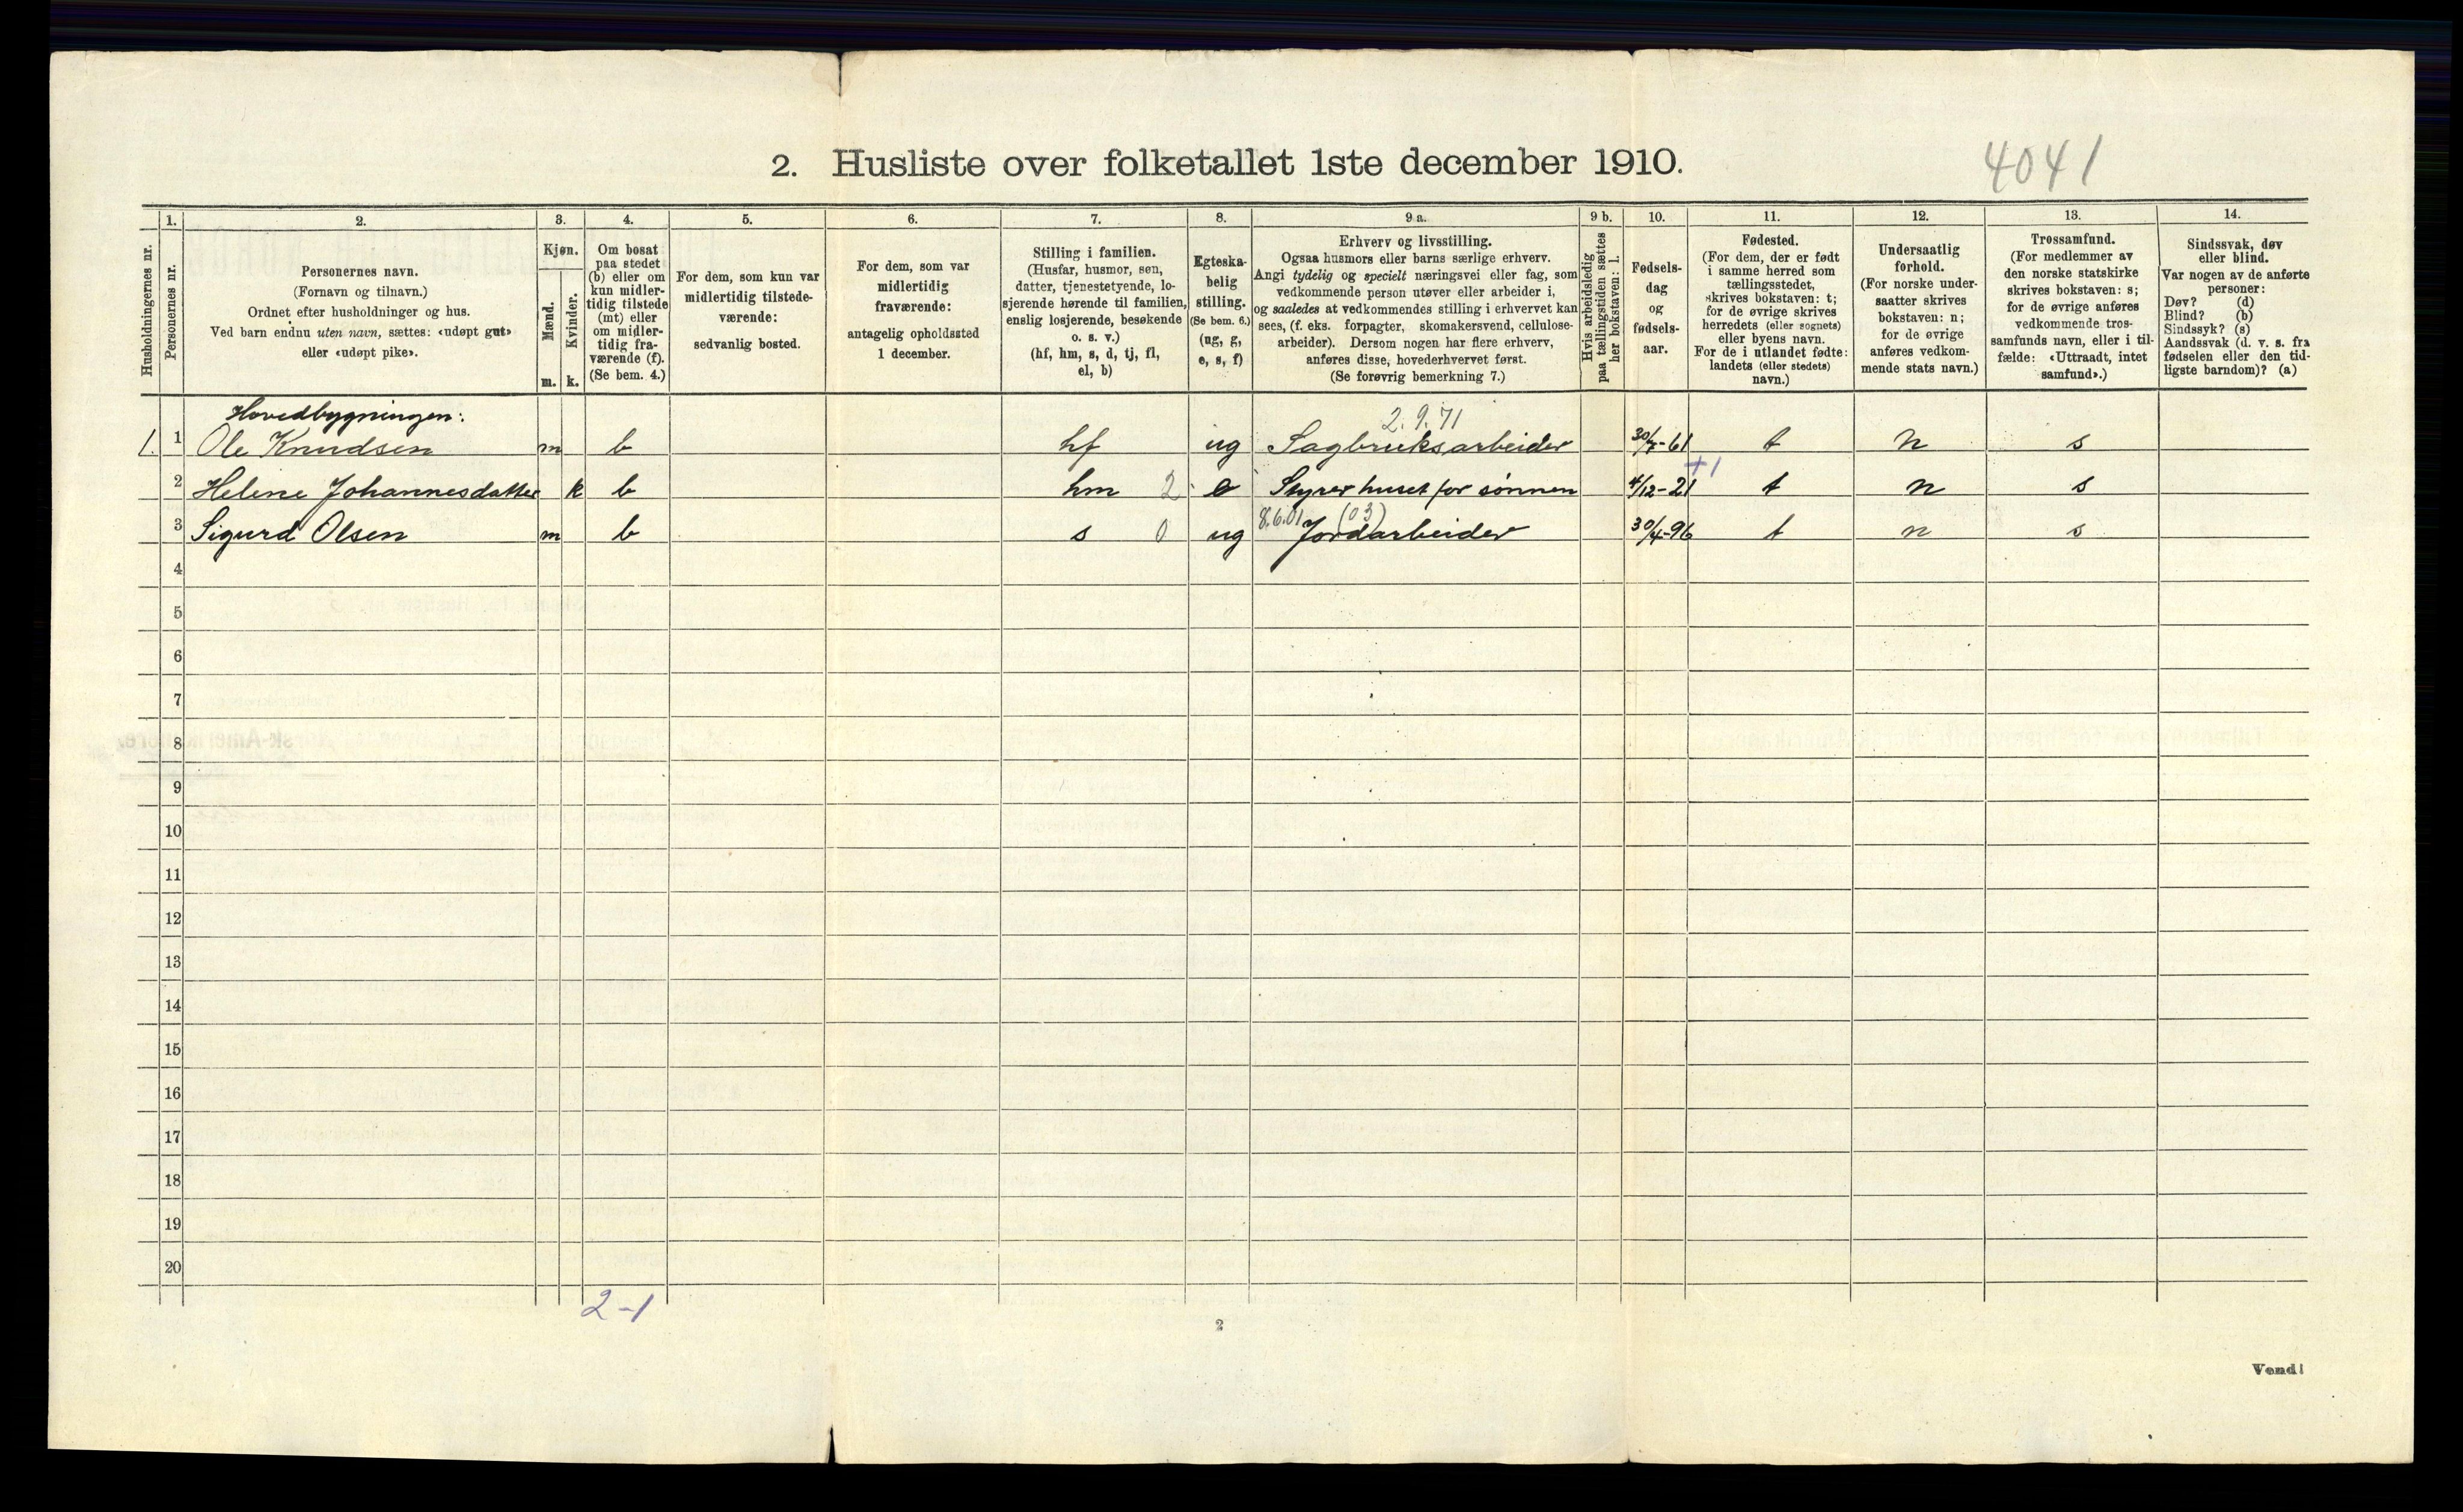 4041
2. Husliste over folketallet 1ste december 1910.
Husholdningernes nr.
1.
Personernes nr.
2.
Personernes navn.
(Fornavn og tilnavn.)
Ordnet efter husholdninger og hus.
Ved barn endnu uten navn, sættes: «udøpt gut»
eller «udøpt pike».
3.
Kjøn.
Mænd.
m.
Kvinder.
k.
4.
Om bosat
paa stedet
(b) eller om
kun midler-
tidig tilstede
(mt) eller
om midler-
tidig fra-
værende (f).
(Se bem. 4.)
5.
For dem, som kun var
midlertidig tilstede-
værende:
sedvanlig bosted.
6.
For dem, som var
midlertidig
fraværende:
antagelig opholdssted
1 december.
7.
Stilling i familien.
(Husfar, husmor, søn,
datter, tjenestetyende, lo-
sjerende hørende til familien,
enslig losjerende, besøkende
o. s. v.)
(hf, hm, s, d, tj, fl,
el, b)
8.
Egteska-
belig
stilling.
(Se bem. 6.)
(ug, g,
e, s, f)
9 a.
Erhverv og livsstilling.
Ogsaa husmors eller barns særlige erhverv.
Angi tydelig og specielt næringsvei eller fag, som
vedkommende person utøver eller arbeider i,
og saaledes at vedkommendes stilling i erhvervet kan
sees, (f. eks. forpagter, skomakersvend, cellulose-
arbeider). Dersom nogen har flere erhverv,
anføres disse, hovederhvervet først.
(Se forøvrig bemerkning 7.)
9 b.
Hvis arbeidsledig
paa tællingstiden sættes
her bokstaven: l.
10.
Fødsels-
dag
og
fødsels-
aar.
11.
Fødested.
(For dem, der er født
i samme herred som
tællingsstedet,
skrives bokstaven: t;
for de øvrige skrives
herredets (eller sognets)
eller byens navn.
For de i utlandet fødte:
landets (eller stedets)
navn.)
12.
Undersaatlig
forhold.
(For norske under-
saatter skrives
bokstaven: n;
for de øvrige
anføres vedkom-
mende stats navn.)
13.
Trossamfund.
(For medlemmer av
den norske statskirke
skrives bokstaven: s;
for de øvrige anføres
vedkommende tros-
samfunds navn, eller i til-
fælde: «Uttraadt, intet
samfund».)
14.
Sindssvak, døv
eller blind.
Var nogen av de anførte
personer:
Døv? (d)
Blind? (b)
Sindssyk? (s)
Aandssvak (d. v. s. fra
fødselen eller den tid-
ligste barndom)? (a)
Hovedbygningen: 2.9.71
1. 1 Ole Knudsen m b hf ug Sagbruksarbeider 30/7-61 t n s
+1
2 Helene Johannesdatter k b hm 2 e Styrer huset for sønnen 4/12-21 t n s
8.6.01 (03)
3 Sigurd Olsen m b s 0 ug Jordarbeider 30/4-96 t n s
4
5
6
7
8
9
10
11
12
13
14
15
16
17
18
19
20
2-1
2
Vend!